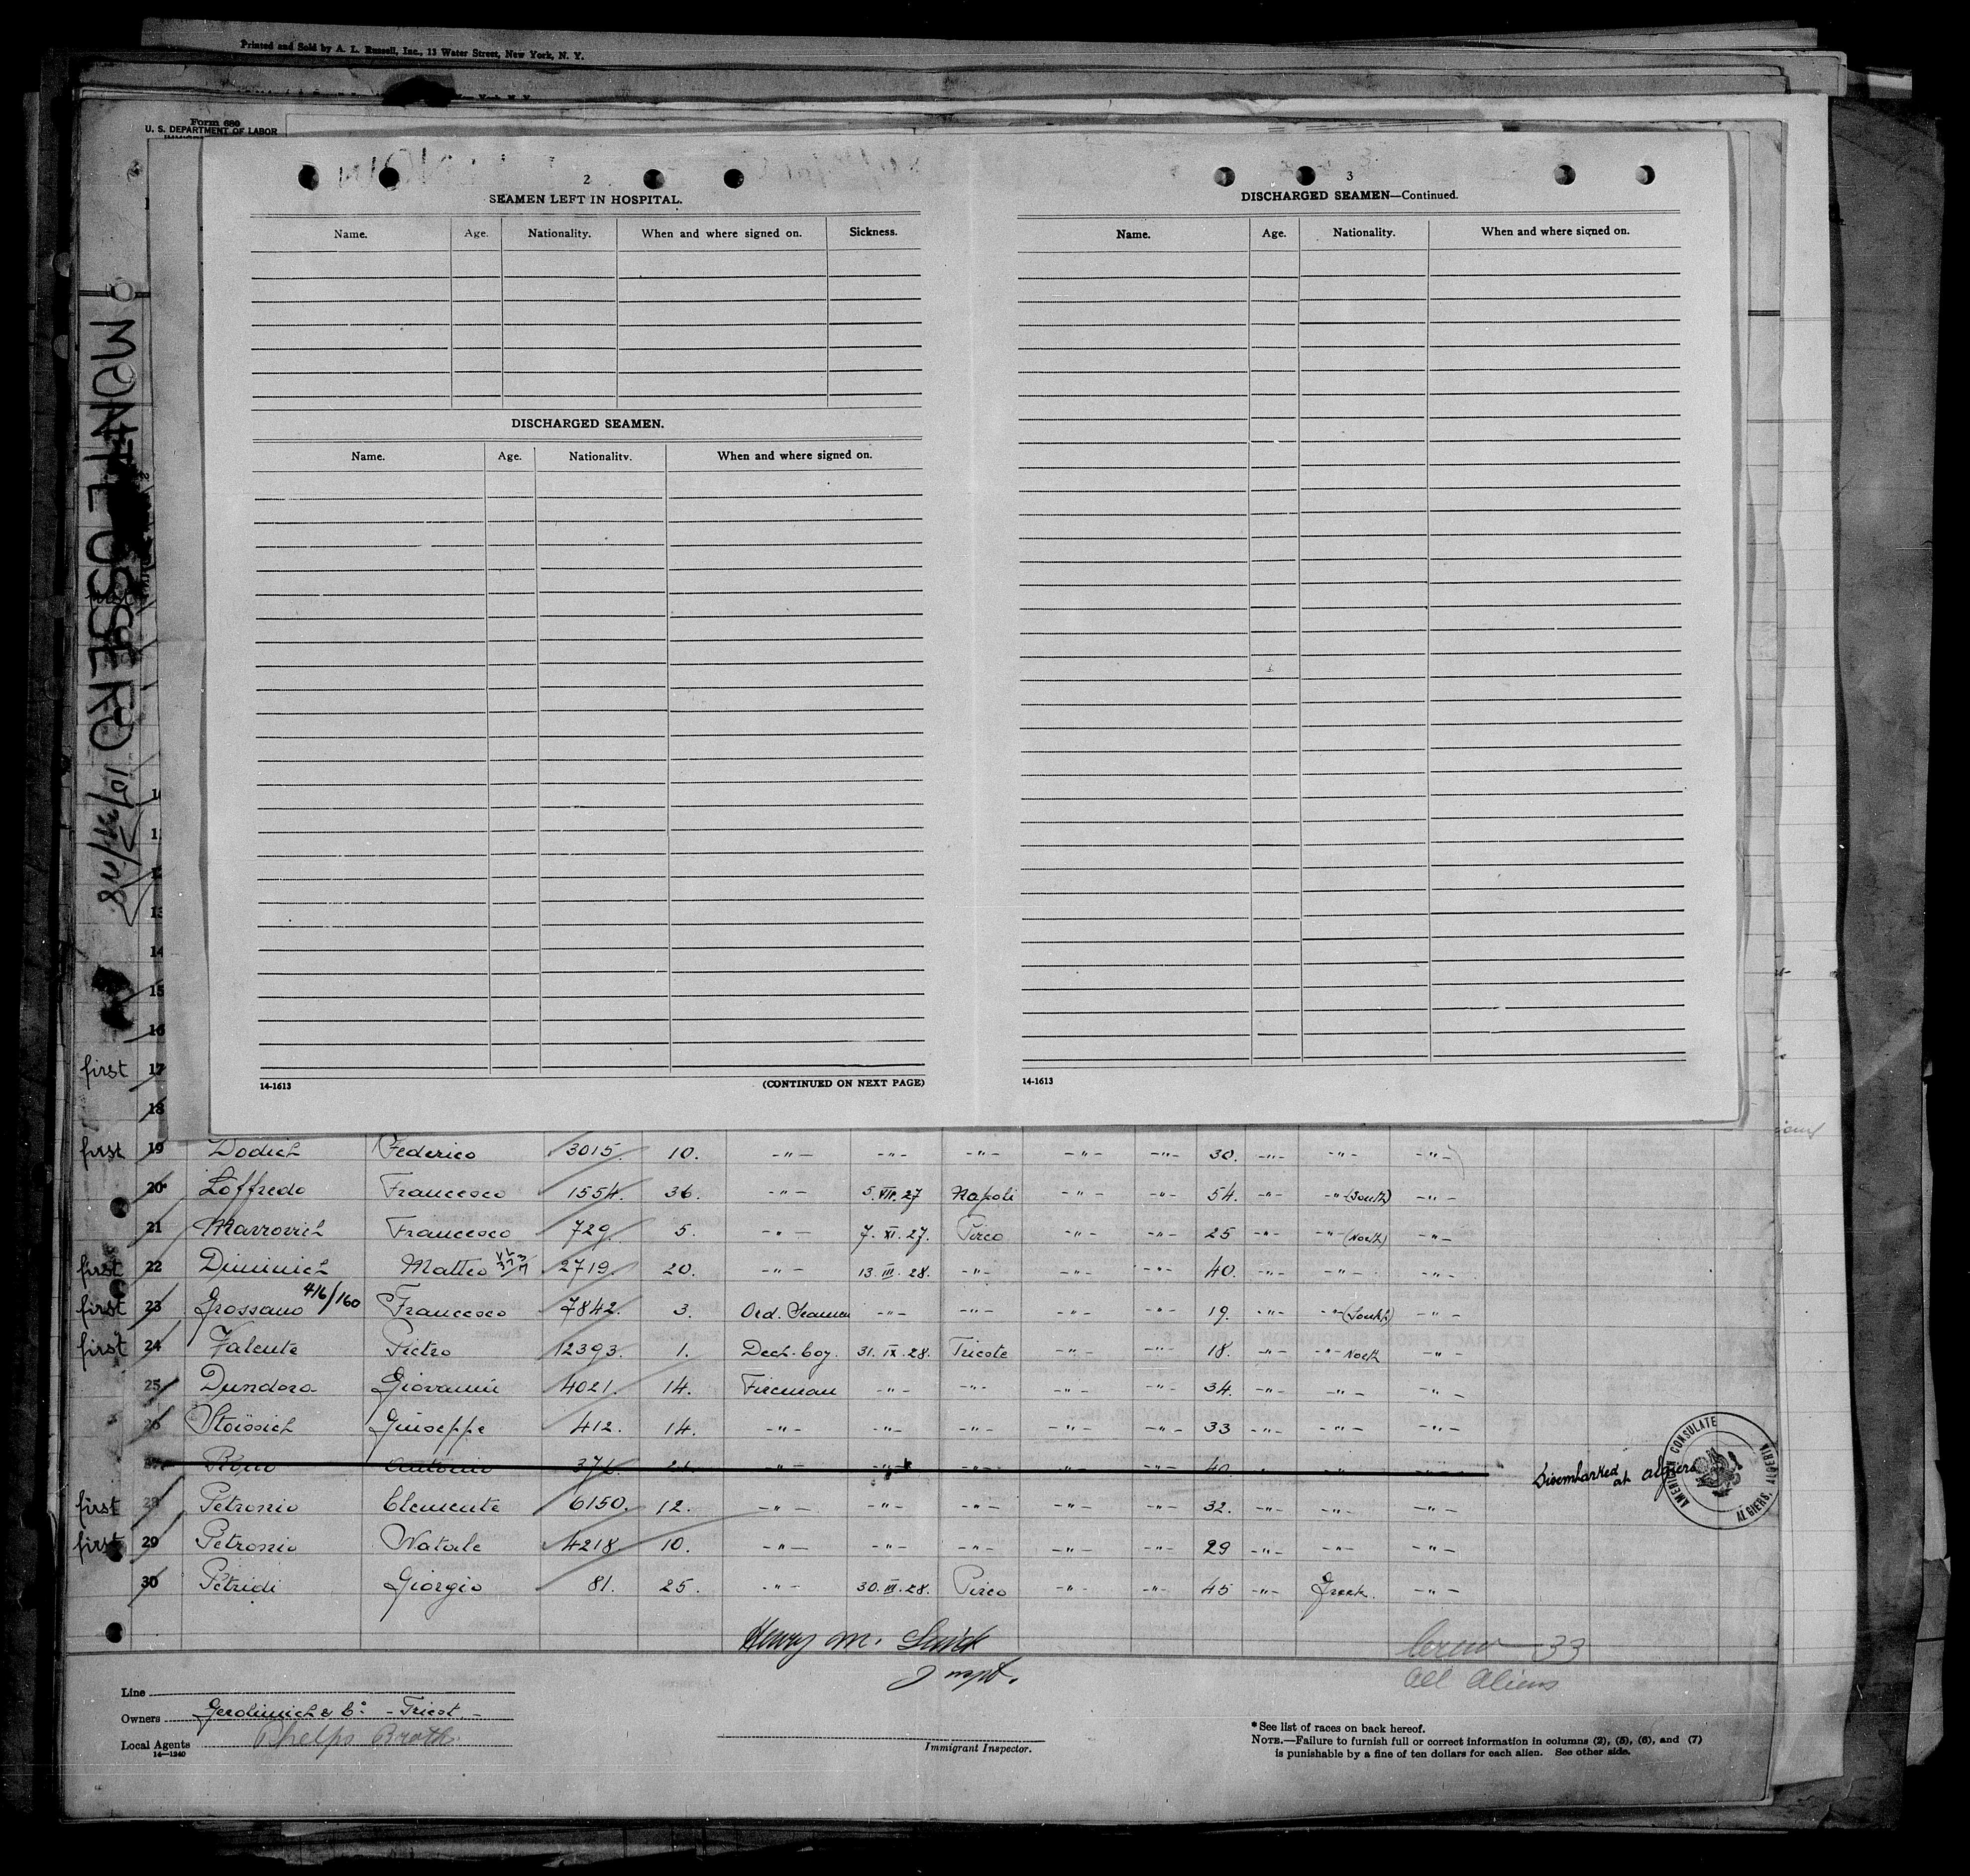 Printed and Sold by A. L. Russell, Inc., 13 Water Street, New York, N. Y.
Form 680
U. S. DEPARTMENT OF LABOR
MONTE OSSERO
2
SEAMEN LEFT IN HOSPITAL.
Name. Age. Nationality. When and where signed on. Sickness.
DISCHARGED SEAMEN.
Name. Age. Nationality. When and where signed on.
14-1613 (CONTINUED ON NEXT PAGE)
3
DISCHARGED SEAMEN—Continued.
Name. Age. Nationality. When and where signed on.
14-1613
13
14
15
16
first 17
18
first 19 Dodich Federico 3015. 10. -"- -"- -"- -"- -"- 30. -"- -"- -"-
20 Loffredo Francesco 1554. 36. -"- 5. VII. 27 Napoli -"- -"- 54. -"- -"- (South) -"-
21 Marrovich Francesco 729. 5. -"- 7. XI. 27. Pireo -"- -"- 25 -"- -"- (North) -"-
first 22 Diminich Matteo 2719. 20. -"- 13. III. 28. -"- -"- -"- 40. -"- -"- -"-
first 23 Grossano 416/160 Francesco 7842. 3. Ord. Seaman -"- -"- -"- -"- 19. -"- -"- (South) -"-
first 24 Valente Pietro 12393. 1. Deck-boy. 31. IX. 28. Trieste -"- -"- 18. -"- -"- North -"-
25 Dundora Giovanni 4021. 14. Fireman -"- -"- -"- -"- 34. -"- -"- -"-
26 Stoissich Giuseppe 412. 14. -"- -"- -"- -"- -"- 33 -"- -"- -"-
Antonio -"- -"- -"- -"- -"- 40. Disembarked at Algiers
AMERICAN CONSULATE
ALGIERS, ALGERIA
first 28 Petronio Clemente 6150. 12. -"- -"- -"- -"- -"- 32. -"- -"- -"-
first 29 Petronio Natale 4218. 10. -"- -"- -"- -"- -"- 29 -"- -"- -"-
30 Petridi Giorgio 81. 25. -"- 30. III. 28. Pireo -"- -"- 45 -"- Greek. -"-
Henry M.
Inspt.
Crew—33
All Aliens
Line
Owners Gerolimich & Co. - Triest -
Local Agents Phelps Broth.
14—1240
Immigrant Inspector.
*See list of races on back hereof.
NOTE.—Failure to furnish full or correct information in columns (2), (5), (6), and (7)
is punishable by a fine of ten dollars for each alien. See other side.